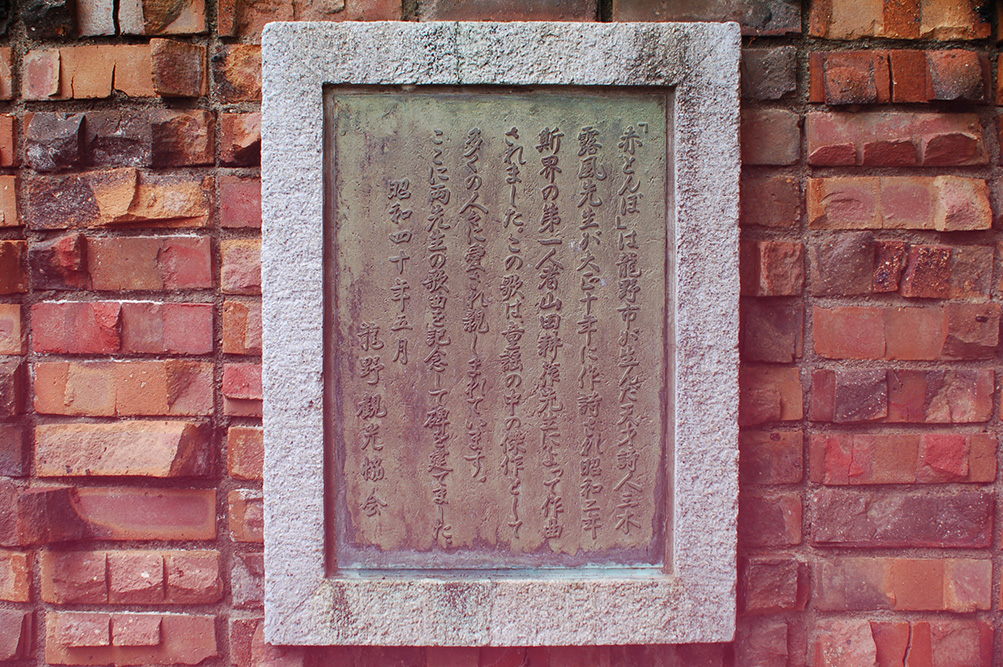 「赤とんぼ」は龍野市が生んだ天才詩人三木
露風先生が大正十年に作詩され昭和二年
斯界の第一人者山田耕筰先生によって作曲
されました。この歌は童謡の中の傑作として
多くの人々に愛され親しまれています。
ここに両先生の歌曲を記念して碑を建てました。
昭和四十年五月
龍野観光協会